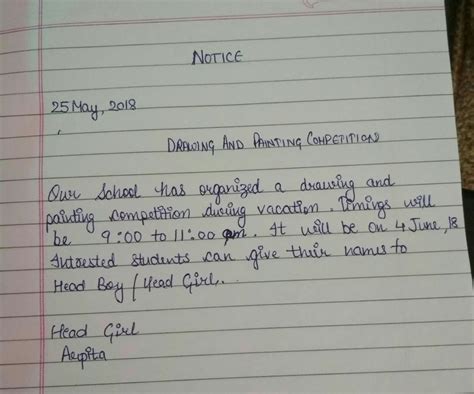 NOTICE
25 May, 2018
DRAWING AND PAINTING COMPETITION
Our School has organized a drawing and
painting competition during vacation. Timings will
be 9:00 to 11:00 am. It will be on 4 June, 18
Intrested students can give their names to
Head Boy / Head Girl.
Head Girl
Aarpita